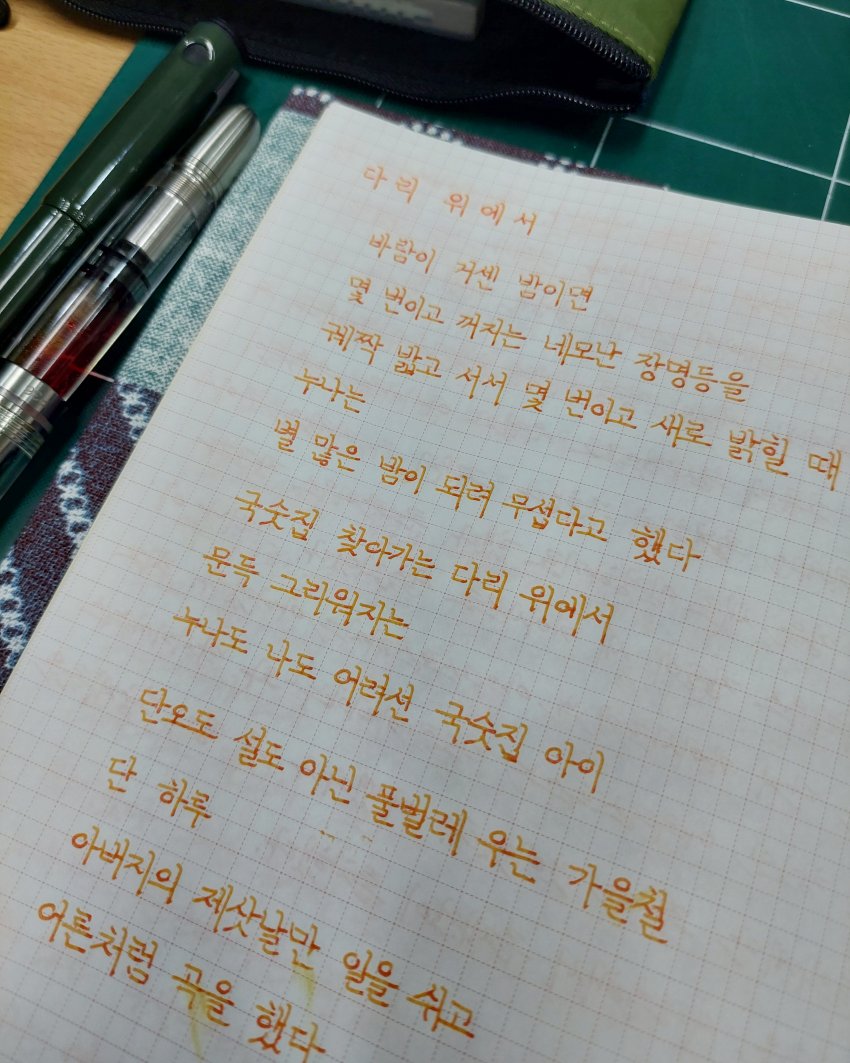 다리 위에서
바람이 거센 밤이면
몇 번이고 꺼지는 네모난 장명등을
궤짝 밟고 서서 몇 번이고 새로 밝힐 때
누나는
별 많은 밤이 되려 무섭다고 했다
국숫집 찾아가는 다리 위에서
문득 그리워지는
누나도 나도 어려선 국숫집 아이
단오도 설도 아닌 풀벌레 우는 가을철
단 하루
아버지의 제삿날만 일을 쉬고
어른처럼 곡을 했다